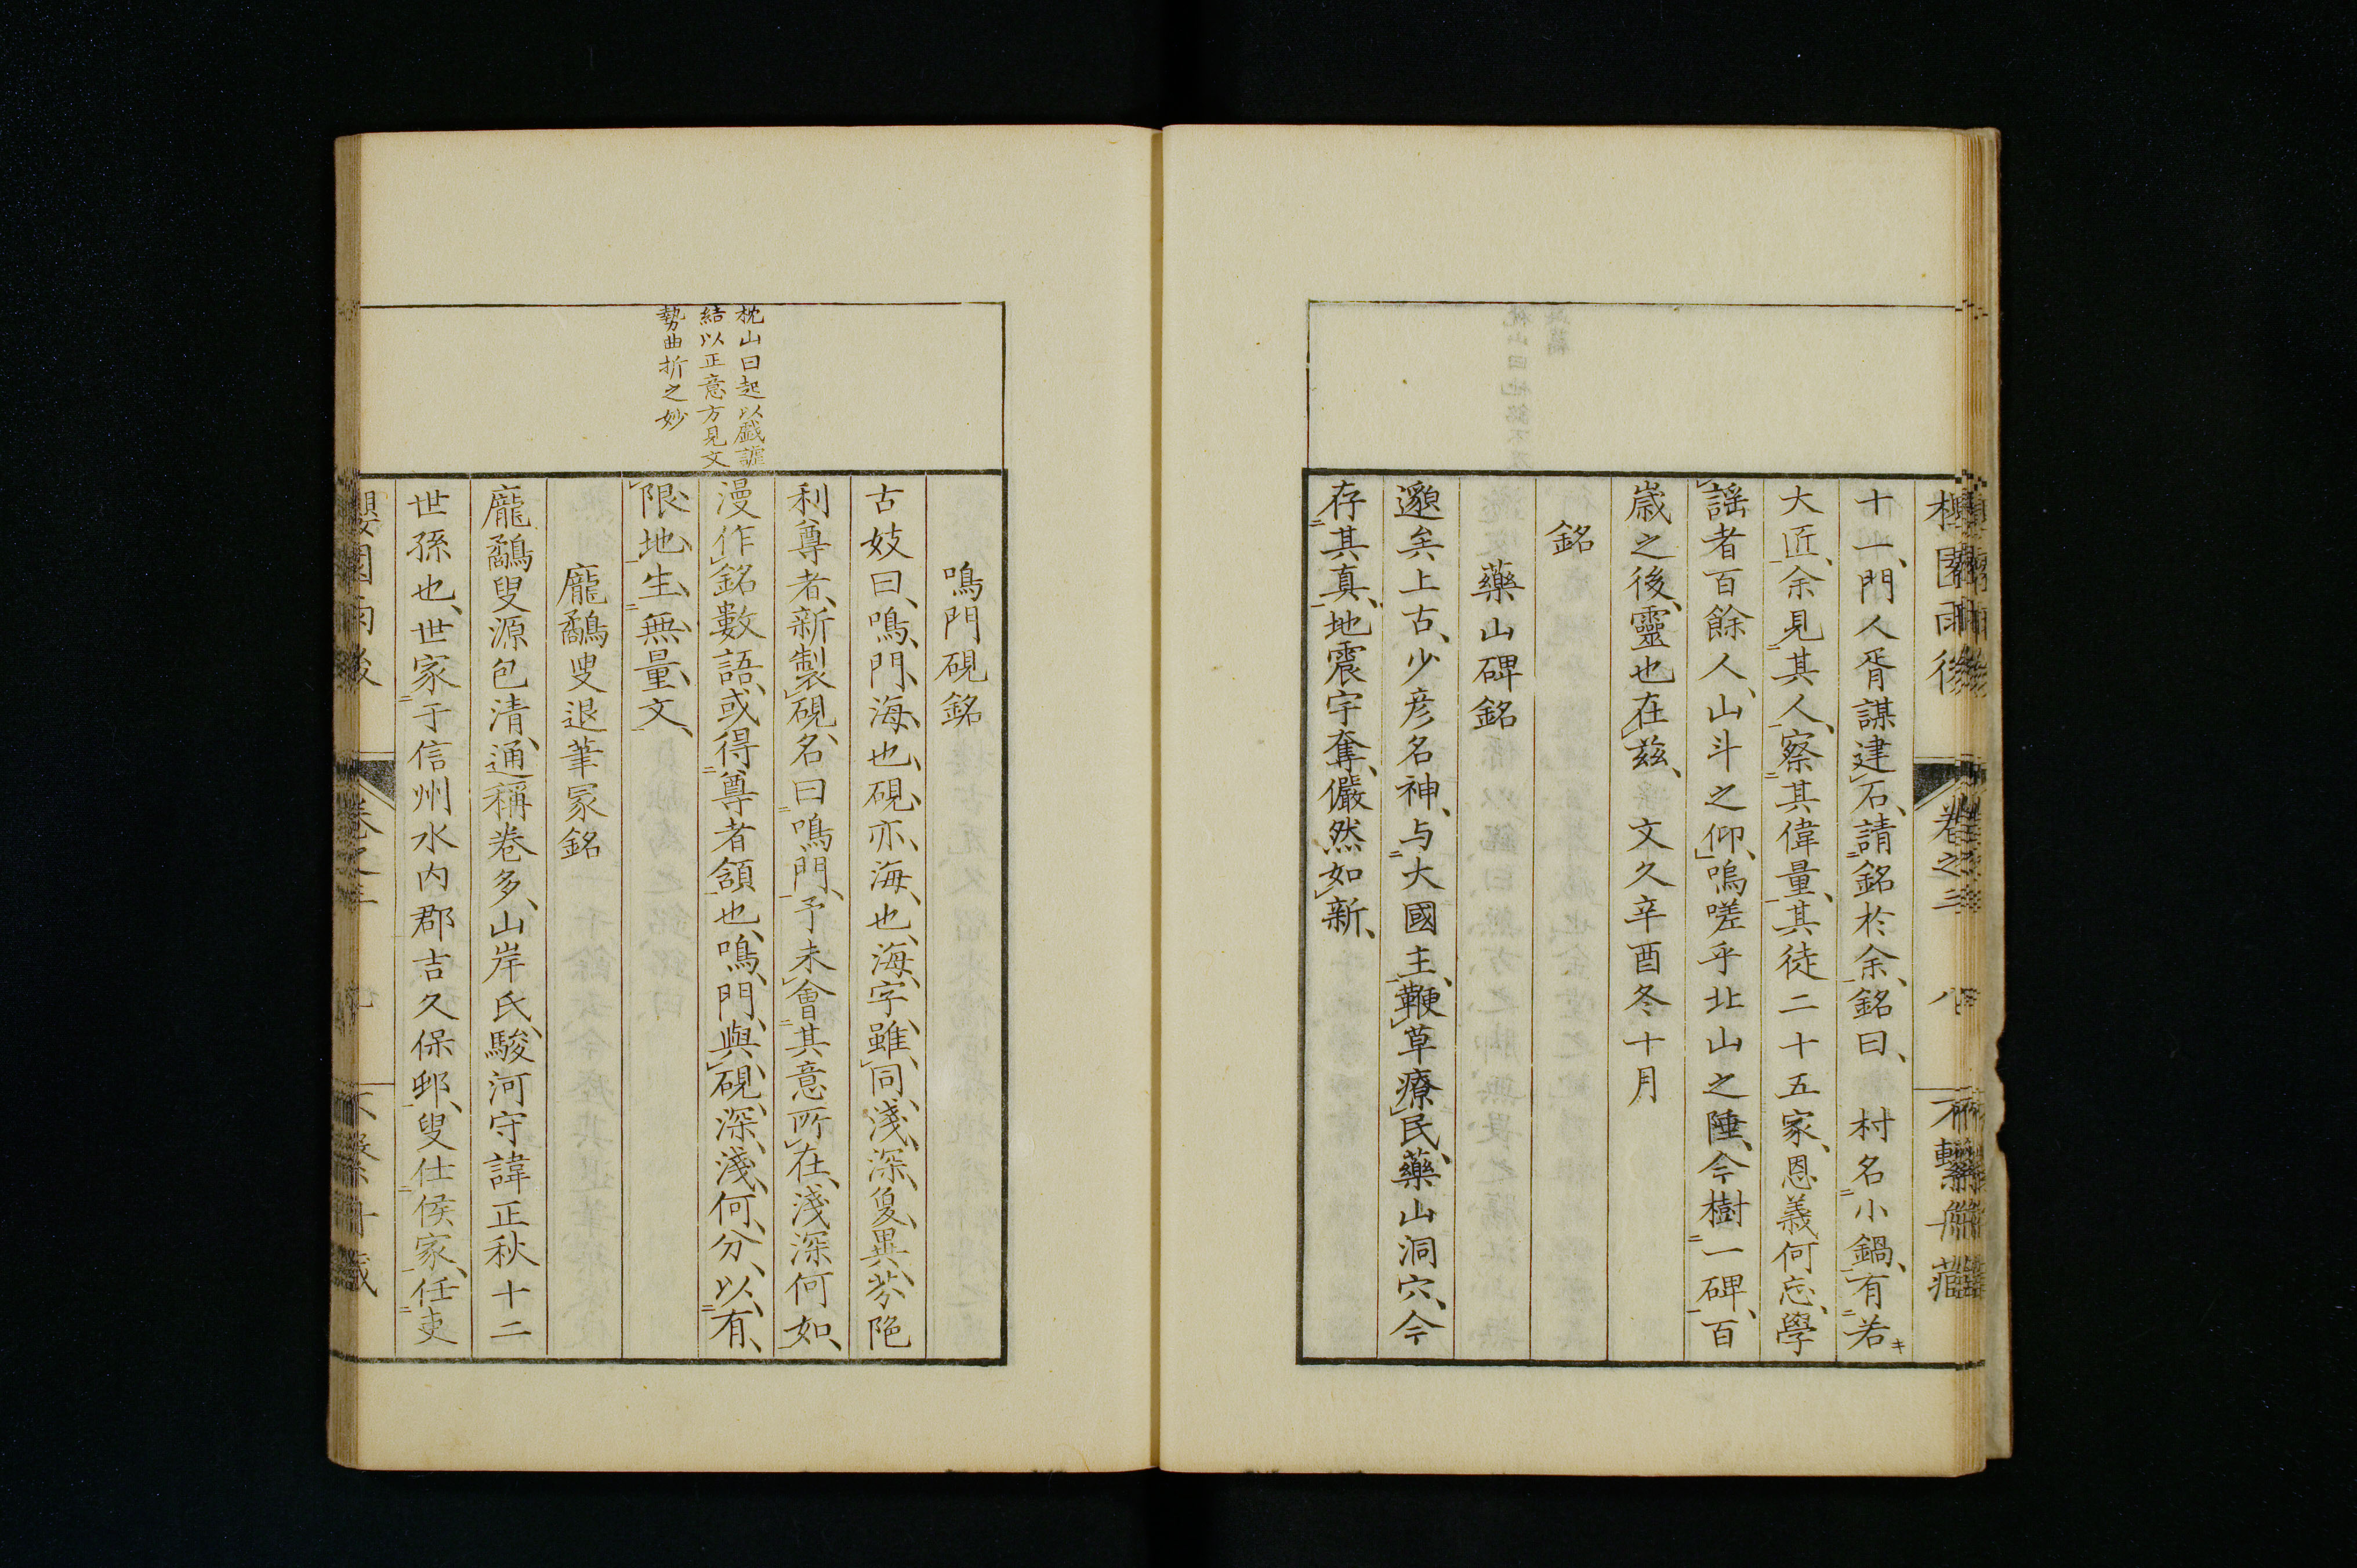 十一、門人胥謀建石、請銘於余、銘曰、　村名小鍋、有若キ
大匠、余見其人、察其偉量、其徒二十五家、恩義何忘、學
謡者百餘人、山斗之仰、嗚嗟乎北山之陲、今樹一碑、百
歳之後、靈也在茲、　文久辛酉冬十月
銘
藥山碑銘
邈矣上古、少彦名神、与大國主、鞭草療民、藥山洞穴、今
存其真、地震宇奪、儼然如新、
卷之三　八
枕山曰起以戯謔
結以正意方見文
勢曲折之妙
鳴門硯銘
古妓曰、鳴門、海也、硯亦海也、海字雖同、淺深夐異、芬陁
利尊者、新製硯、名曰鳴門、予未會其意所在、淺深何如、
漫作銘數語、或得尊者頷也、鳴門與硯、深淺何分、以有
限地、生無量文、
龐鷸叟退筆冢銘
龐鷸叟源包清、通稱巻多、山岸氏、駿河守諱正秋十二
世孫也、世家于信州水内郡吉久保邨、叟仕侯家、任吏